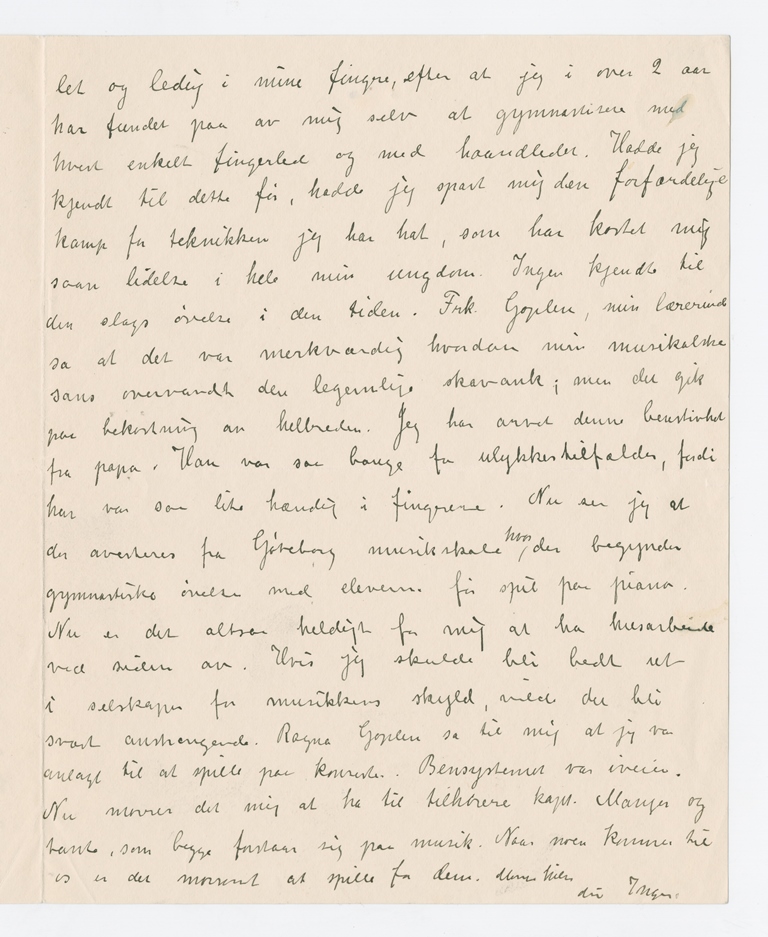 let og ledig i mine fingre, efter at jeg i over 2 aar
har fundet paa av mig selv at gymnastisere med
hvert enkelt fingerled og med haandledet. Hadde jeg
kjendt til dette før, hadde jeg spart mig den forfærdelige
kamp for teknikken jeg har hat, som har kostet mig
saan lidelse i hele min ungdom. Ingen kjendte til
den slags øvelse i den tiden. Frk. Goplen, min lærerinde
sa at det var merkværdig hvordan min musikalske
sans overvandt den legemlige skavank; men det gik
paa bekostning av helbreden. Jeg har arvet denne benstivhet
fra papa. Han var saa bange for ulykkestilfælder, fordi
han var saa lite hændig i fingerene. Nu ser jeg at
der averteres fra Gøteborg musikskole hvor der begynder
gymnastiske øvelse med eleverne før spil paa piano.
Nu er det altsaa heldigt for mig at ha husarbeide
ved siden av. Hvis jeg skulde bli bedt ut
i selskaper for musikkens skyld, vilde det bli
svært anstrengende. Ragna Goplen sa til mig at jeg var
anlagt til at spille paa konserter. Bensystemet var iveien.
Nu morrer det mig at ha til tilhørere kapt. Manger og
tante, som begge forstaar sig paa musik. Naar noen kommer til
os er det morsomt at spille for dem.
din Inger.